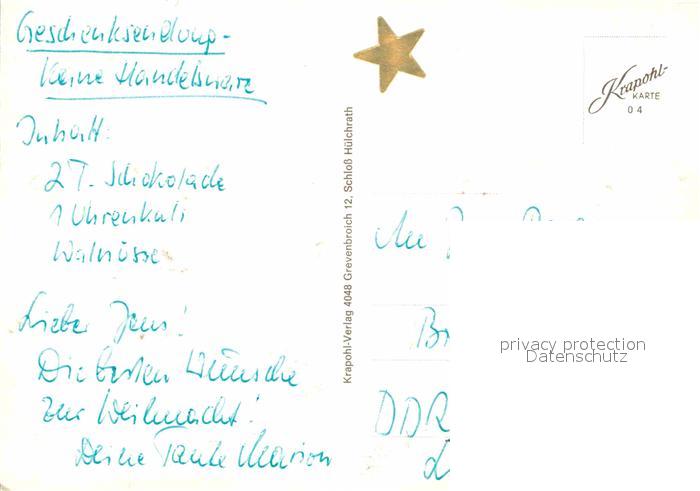 Geschenksendung-
Keine Handelsware
Inhalt:
2 T. Schokolade
1 Uhrenkuli
Walnüsse
Lieber Jens!
Die besten Wünsche
zur Weihnacht!
Deine Tante Marion
Krapohl-Verlag 4048 Grevenbroich 12, Schloß Hülchrath
Krapohl-
KARTE
04
An
DDR
privacy protection
Datenschutz